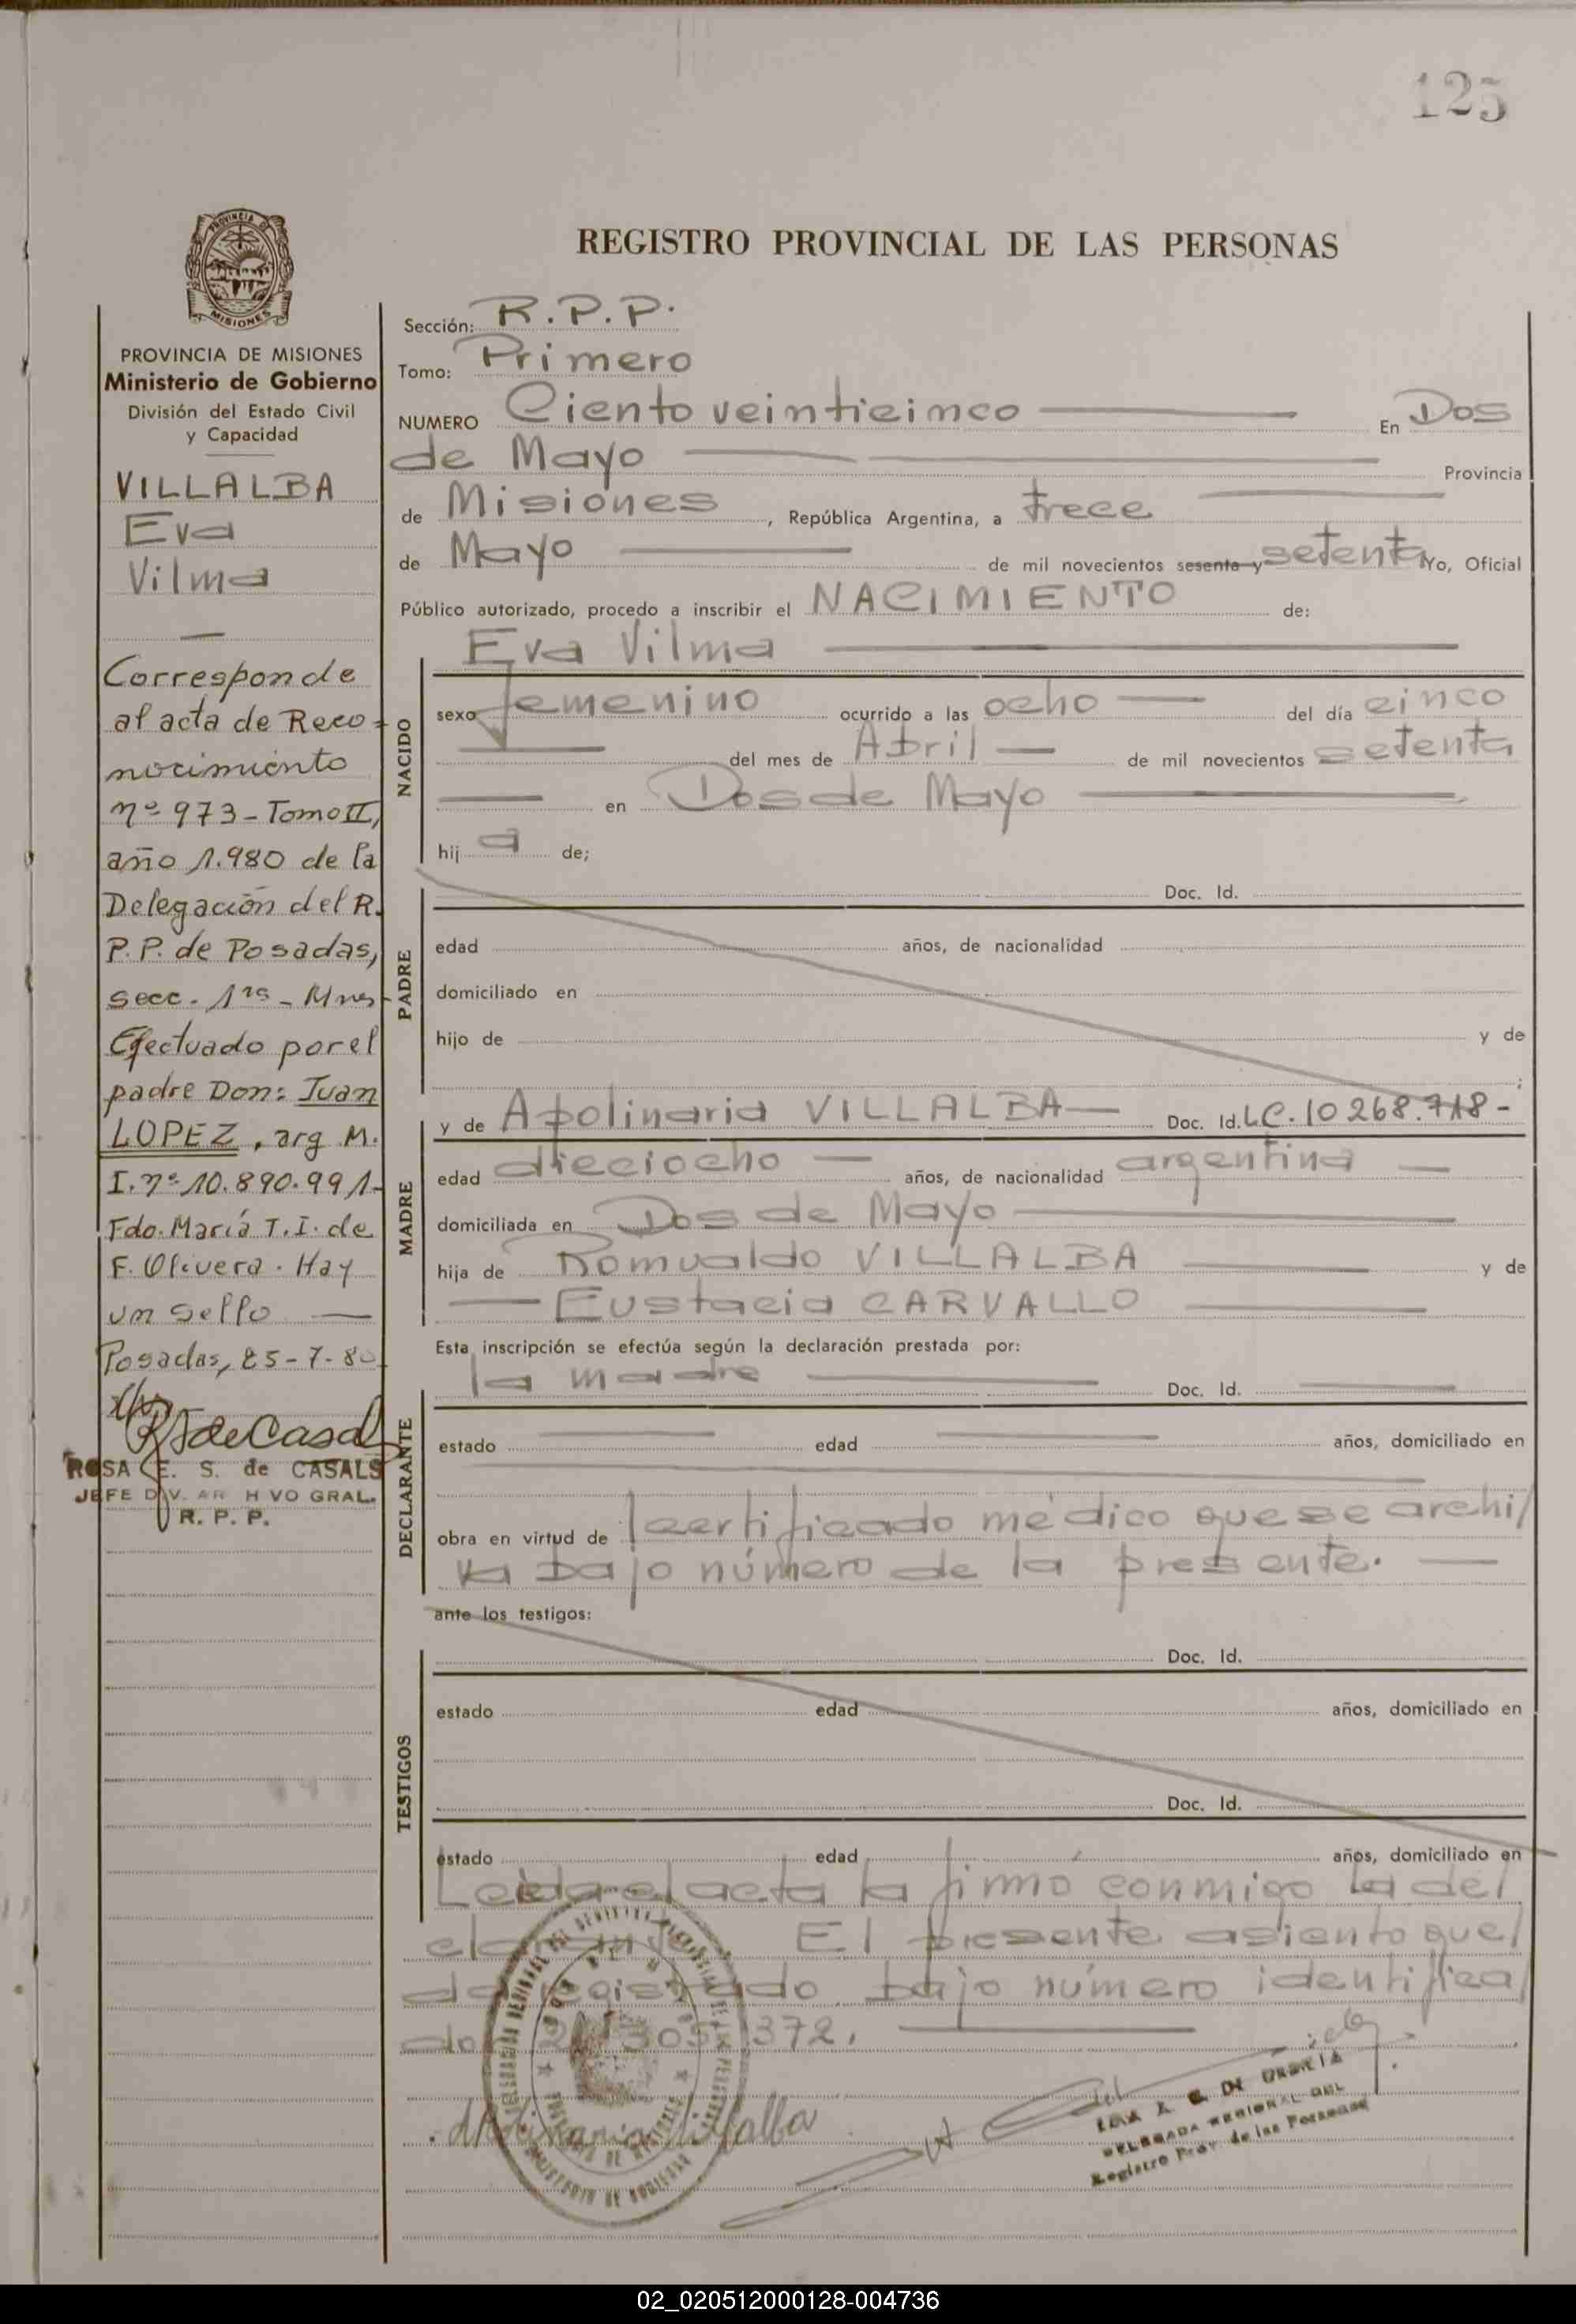 125
PROVINCIA DE
MISIONES
REGISTRO PROVINCIAL DE LAS PERSONAS
PROVINCIA DE MISIONES
Ministerio de Gobierno
División del Estado Civil
y Capacidad
VILLALBA
Eva
Vilma
Corresponde
al acta de Reco-
nocimiento
nº 973 - Tomo II,
año 1.980 de la
Delegación del R.
P.P. de Posadas,
secc. 1ra - Mnes
Efectuado por el
padre Don: Juan
LOPEZ, arg M.
I. nº 10.890.991-
Fdo. María T. I. de
F. Olivera. Hay
un sello —
Posadas, 25-7-80
ROSA E. S. de CASALS
JEFE DIV. ARCHIVO GRAL.
R. P. P.
Sección: R.P.P.
Tomo: Primero
NUMERO Ciento veinticinco — En Dos
de Mayo — Provincia
de Misiones, República Argentina, a trece —
de Mayo — de mil novecientos sesenta y setenta Yo, Oficial
Público autorizado, procedo a inscribir el NACIMIENTO de:
NACIDO
Eva Vilma —
sexo femenino ocurrido a las ocho — del día cinco
— del mes de Abril — de mil novecientos setenta
— en Dos de Mayo —
hij a de;
PADRE
Doc. Id.
edad años, de nacionalidad
domiciliado en
hijo de y de
;
MADRE
y de Apolinaria VILLALBA — Doc. Id. L.C. 10268.718-
edad dieciocho — años, de nacionalidad argentina —
domiciliada en Dos de Mayo —
hija de Romualdo VILLALBA — y de
— Eustacia CARVALLO —
Esta inscripción se efectúa según la declaración prestada por:
DECLARANTE
la madre — Doc. Id. —
estado — edad — años, domiciliado en
—
obra en virtud de certificado médico que se archi/
va bajo número de la presente. —
ante los testigos:
TESTIGOS
Doc. Id.
estado edad años, domiciliado en
Doc. Id.
estado edad años, domiciliado en
Leída el acta la firmó conmigo la del
El presente asiento que/
da registrado bajo número identifica/
do 372. —
Apolinaria Villalba
DELEGADA REGIONAL DEL
Registro Prov. de las Personas
02_020512000128-004736